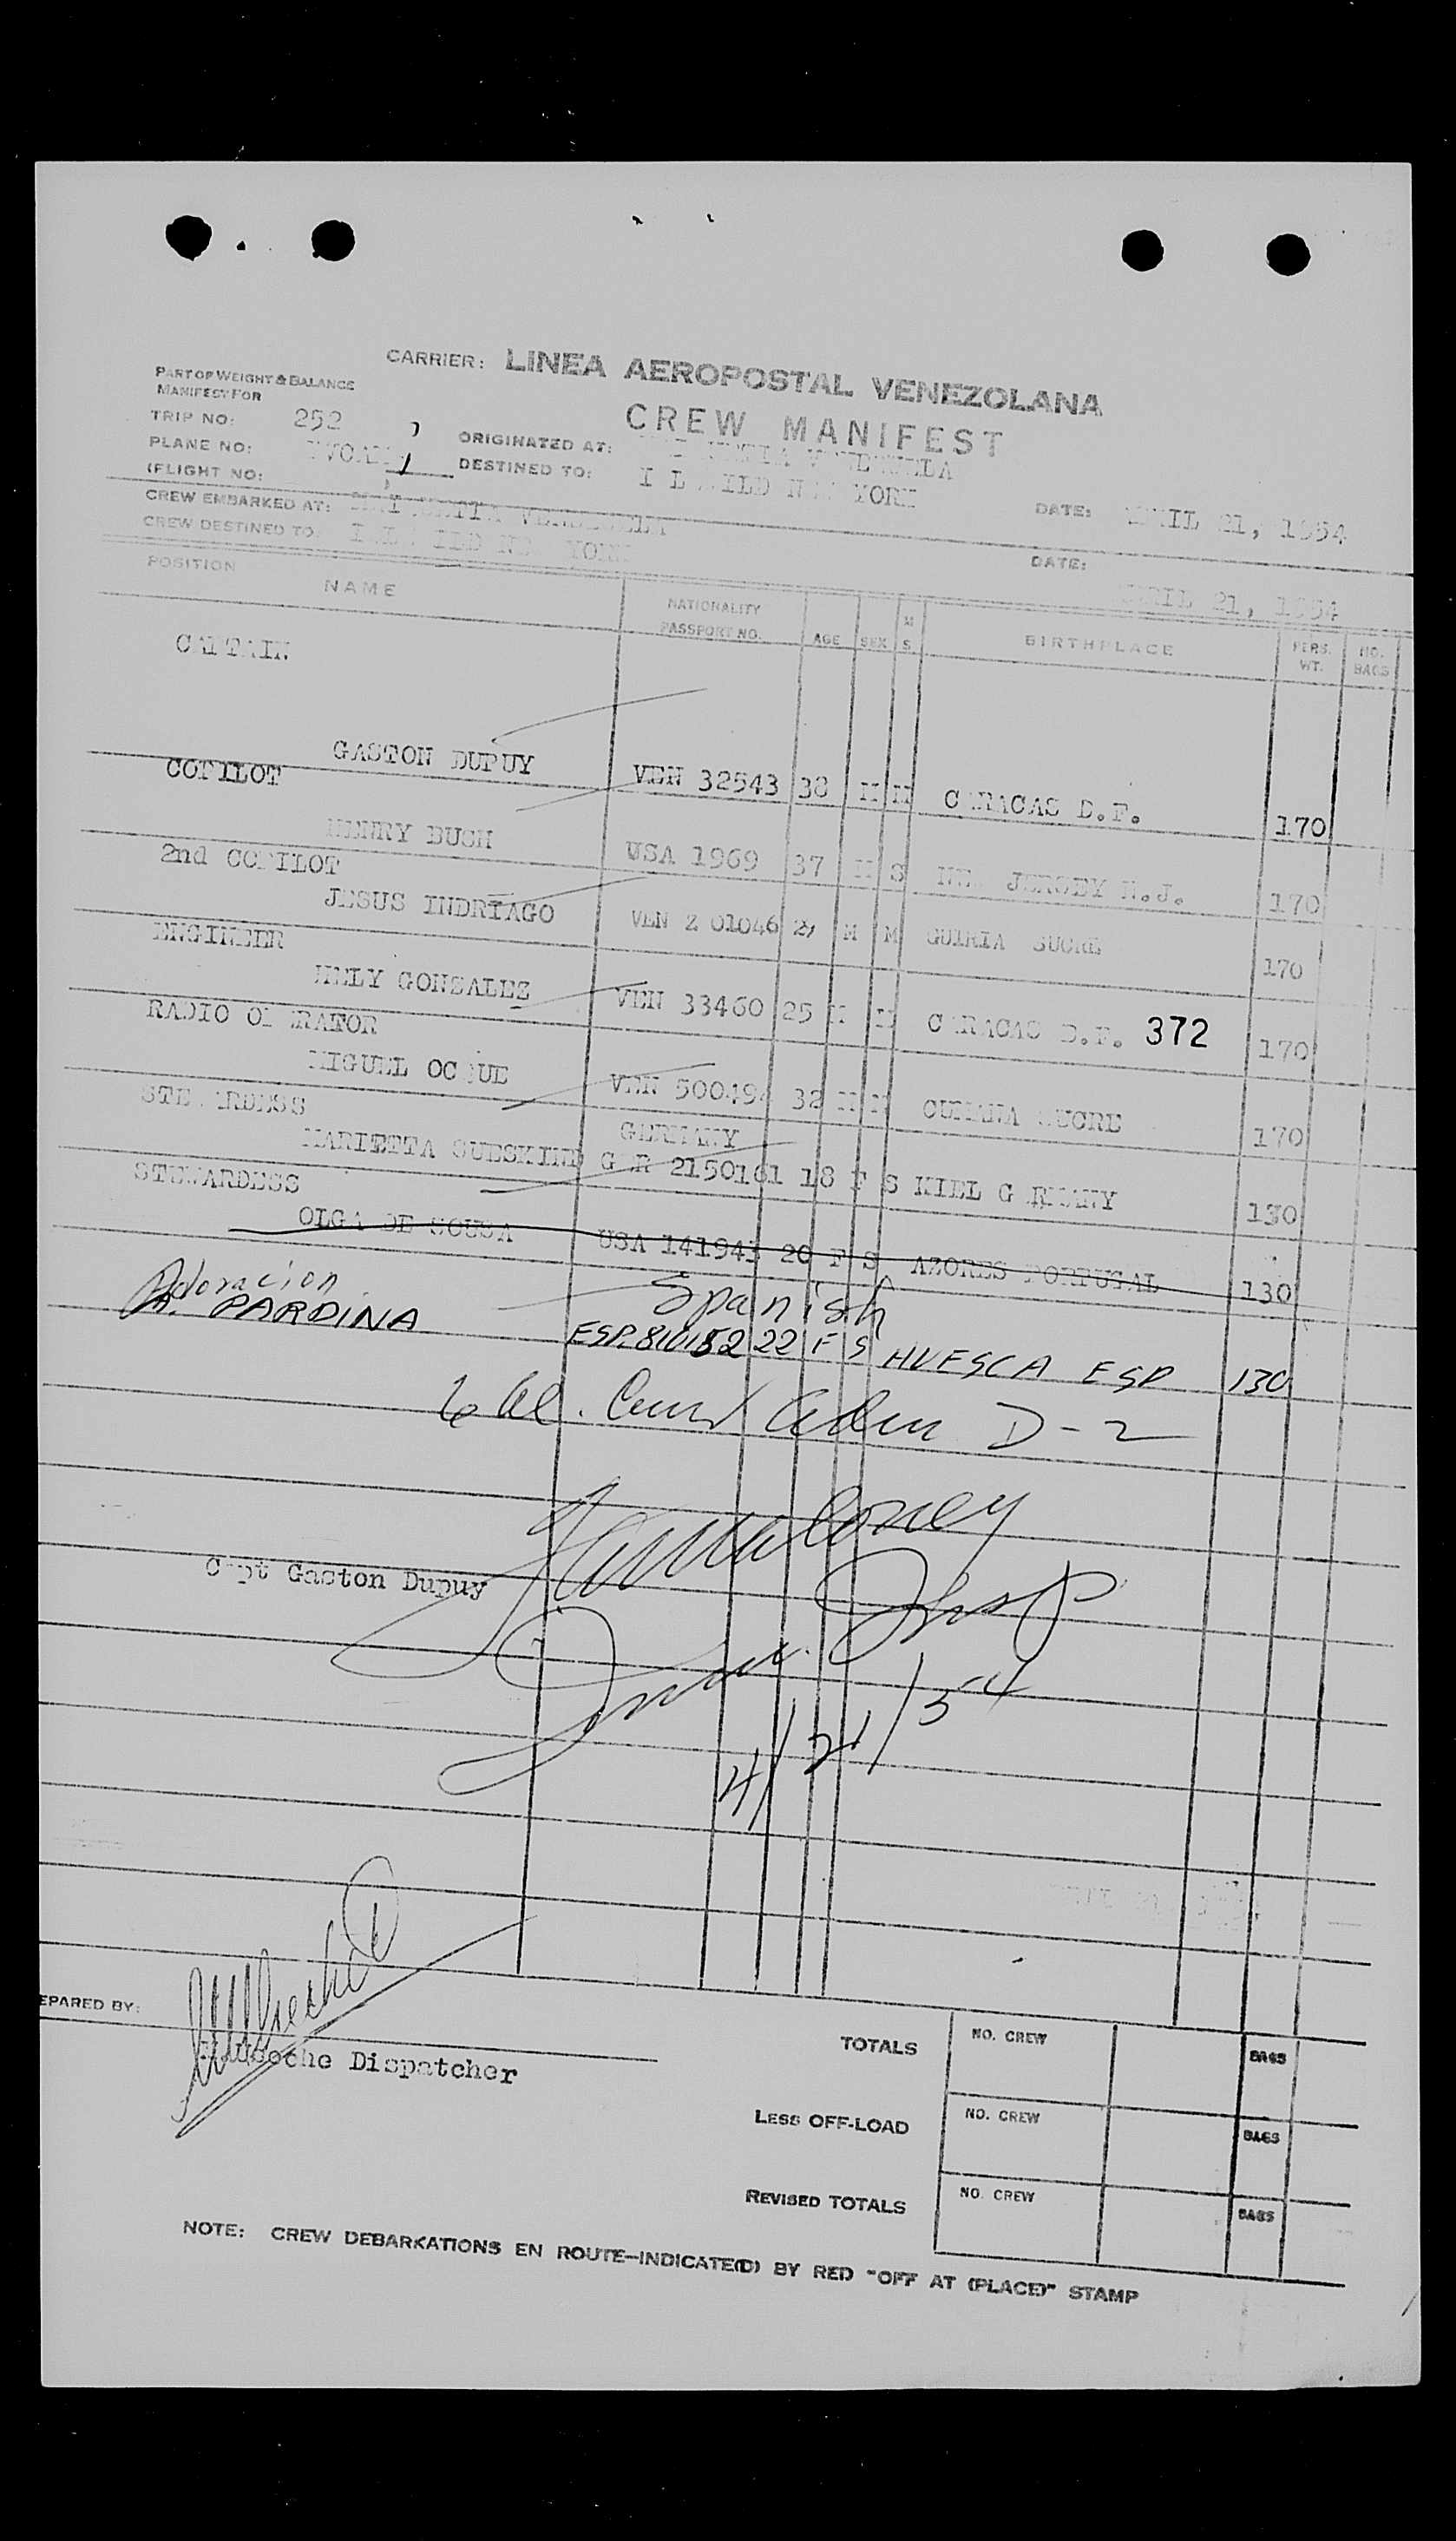 CARRIER: LINEA AEROPOSTAL VENEZOLANA
PART OF WEIGHT & BALANCE
MANIFEST FOR
CREW MANIFEST
TRIP NO: 252
PLANE NO:
ORIGINATED AT: VENEZUELA
(FLIGHT NO:
DESTINED TO: YORK
DATE: APRIL 21, 1954
CREW EMBARKED AT: VENEZUELA
CREW DESTINED TO: YORK
DATE: APRIL 21, 1954
POSITION NAME NATIONALITY PASSPORT NO. AGE SEX M S BIRTHPLACE PERS. WT. NO. BAGS
CAPTAIN
GASTON DUPUY VEN 32543 38 M M CARACAS D.F. 170
COPILOT
HENRY BUSH USA 1969 37 M S NEW JERSEY N.J. 170
2nd COPILOT
JESUS INDRIAGO VEN 2 01046 M M GUIRIA SUCRE 170
ENGINEER
HELY GONSALES VEN 33460 25 M M CARACAS D.F. 372 170
RADIO OPERATOR
MIGUEL VEN 32 M M CUMANA SUCRE 170
STEWARDESS
GERMANY
MARIETTA SUESKIND GER 2150161 18 F S KIEL GERMANY 130
STEWARDESS
OLGA DE SOUSA USA 141943 20 F S AZORES PORTUGAL 130
Adoracion Spanish
A. PARDINA ESP. 22 F S HUESCA ESP 130
D-2
Capt Gaston Dupuy
4/21/54
EPARED BY:
Dispatcher
TOTALS NO. CREW BAGS
LESS OFF-LOAD NO. CREW BAGS
REVISED TOTALS NO. CREW BAGS
NOTE: CREW DEBARKATIONS EN ROUTE-INDICATE(D) BY RED "OFF AT (PLACE)" STAMP